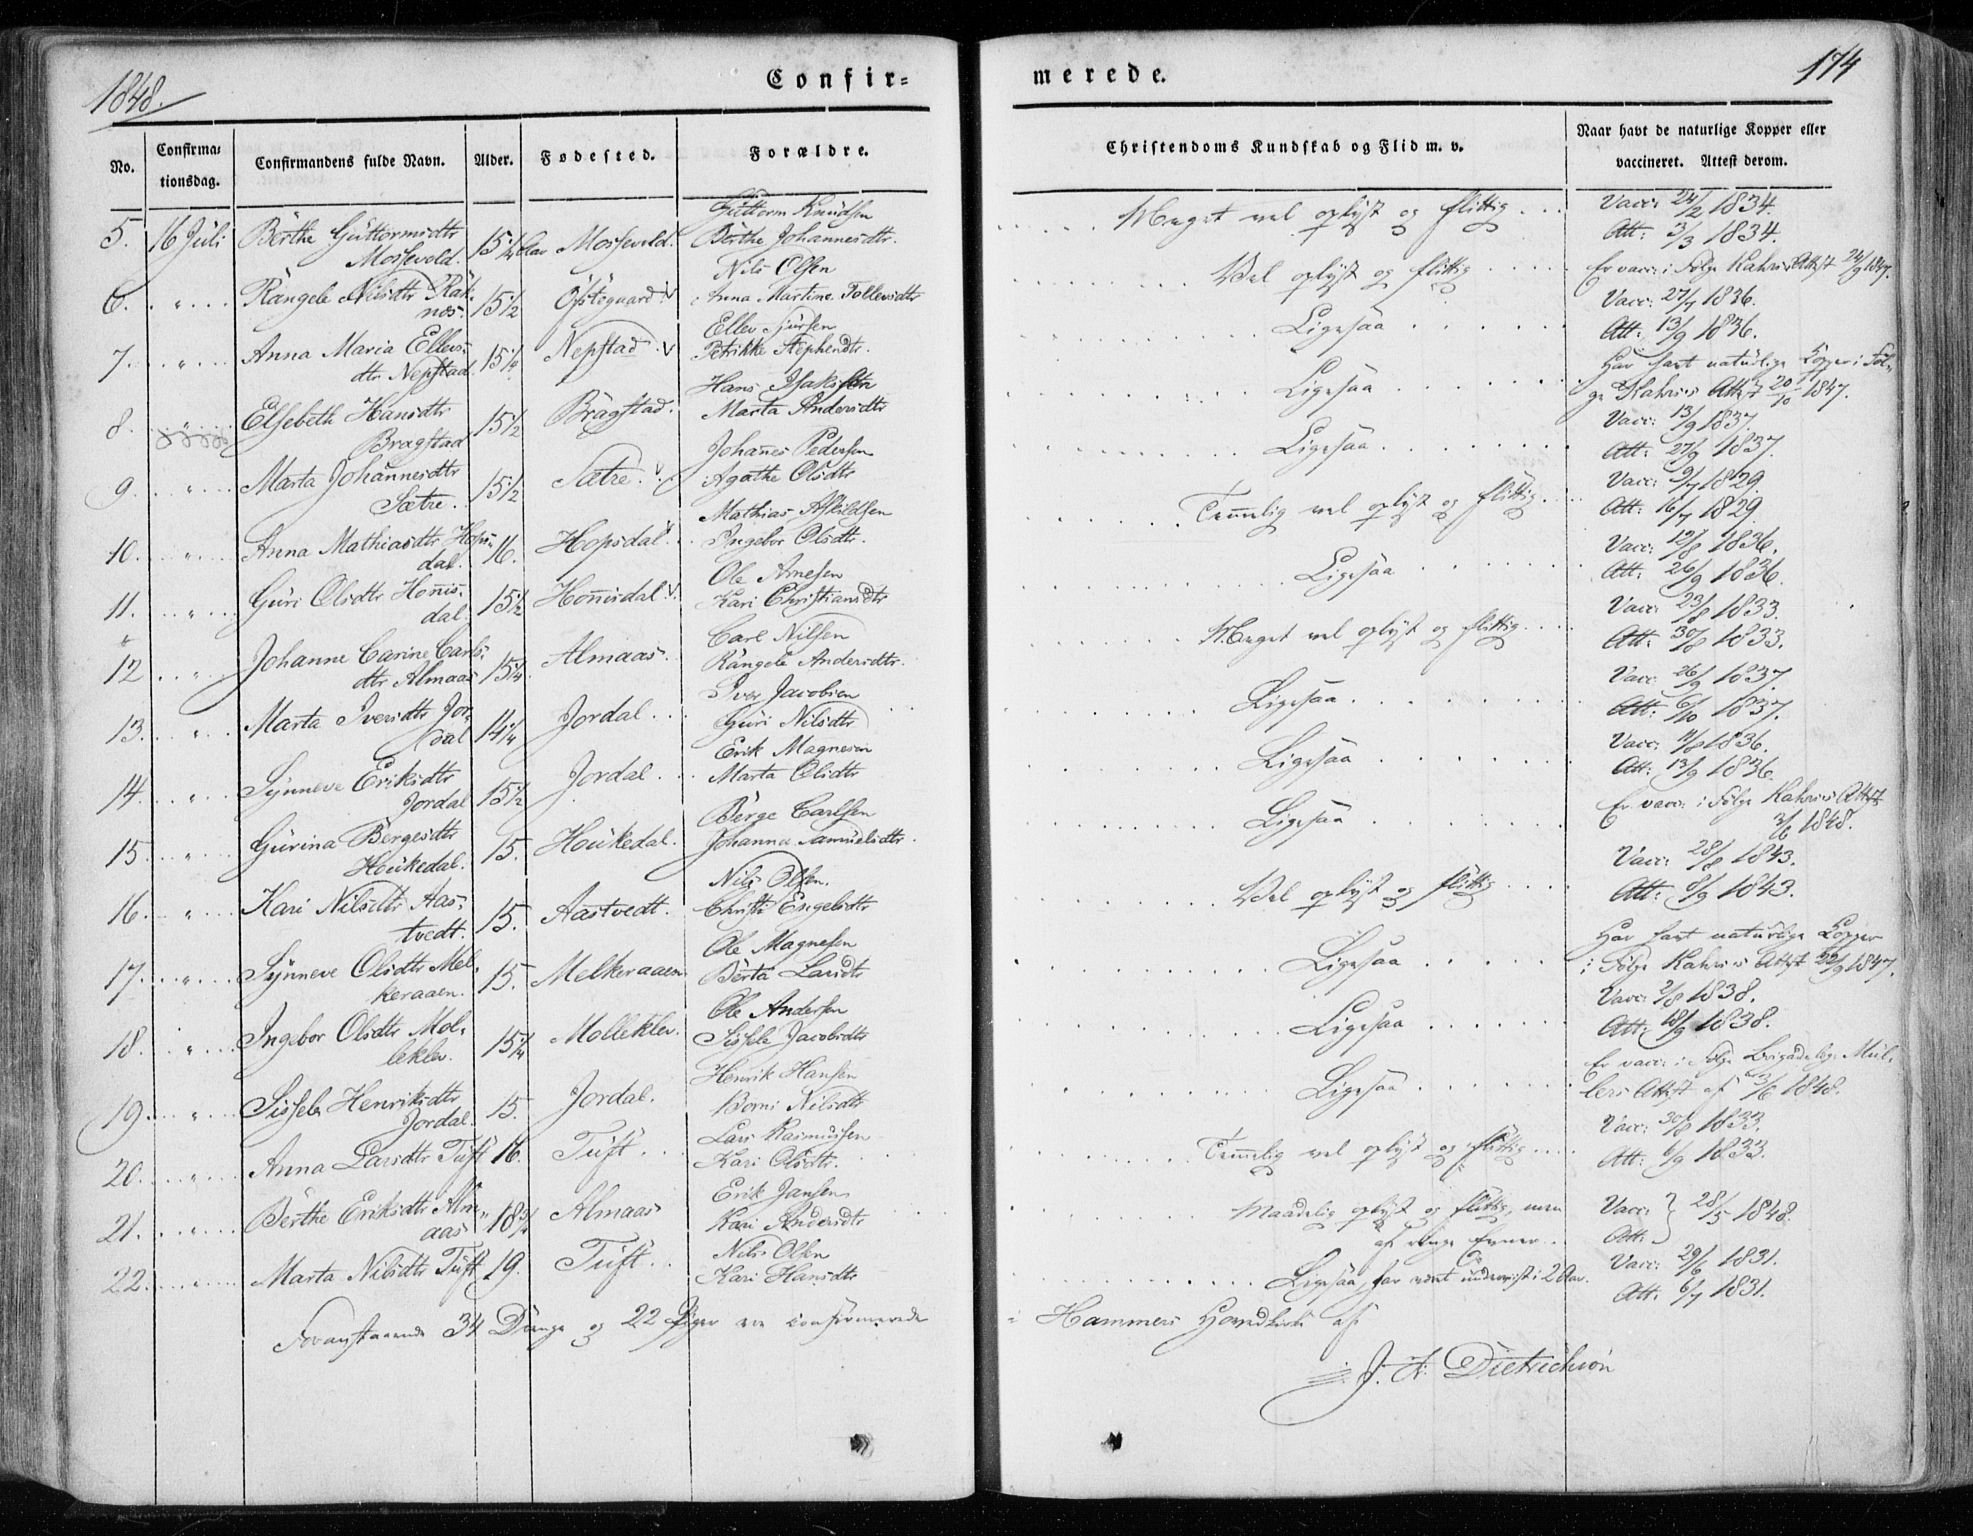 1848.
Confir-
No.
Confirma-
tionsdag.
Confirmandens fulde Navn.
Alder.
Fødested.
Forældre.
5. 16 Juli Berthe Guttormsdtr 15 1/4 Aar Mosevold. Guttorm Knudsen
Mosevold. Berthe Johannesdtr.
6. " Rangele Nilsdtr 15 1/2 Östeguard Nils Olsen
Anna Martine Tollevsdtr
7. " Anna Maria Ellevs- 15 1/2 Nepstad Ellev Sjursen
dtr Nepstad. Petrikke Stephendtr.
8. " Elsebeth Hansdtr 15 1/2 Bragstad. Hans Isaksen
Bragstad Marta Andersdtr
9. " Marta Johannesdtr 15 1/2 Sætre. Johanes Pedersen
Sætre. Agathe Olsdtr
10. " Anna Mathiasdtr Hops- 16. Hopsdal. Mathias Askildsen
dal. Ingebor Olsdtr.
11. " Guri Olsdtr Honis- 15 1/2 Honisdal Ole Arnesen
dal. Kari Christiansdtr
12 " Johanne Carine Carls- 15 1/4 Almaas. Carl Nilsen
dtr Almaas Rangele Andersdtr.
13. " Marta Iversdtr Jor- 14 1/4 Jordal Iver Jacobsen
dal Guri Nilsdtr
14. " Synneve Eriksdtr 15 1/2 Jordal. Erik Magnesen
Jordal Marta Olsdtr
15 " Gurina Bergesdtr 15. Houkedal. Berge Carlsen
Houkedal. Johanna Samuelsdtr.
16. " Kari Nilsdtr Aas- 15. Aastvedt. Nils Olsen.
tvedt. Christi Engelsdtr
17. " Synneve Olsdtr Mel- 15. Melkeraaen Ole Magnesen
keraaen. Berta Larsdtr
18. " Ingebor Olsdtr Mol- 15 1/4 Molleklev. Ole Andersen
leklev. Sissele Jacobsdtr
19. " Sissele Henriksdtr 15. Jordal. Henrik Hansen
Jordal. Borni Nilsdtr
20. " Anna Larsdtr Tuft 16. Tuft. Lars Rasmussen
Kari Olsdtr.
21. " Berthe Eriksdtr Alm- 18 3/4 Almaas Erik Jansen
aas Kari Andersdtr
22. " Marta Nilsdtr Tuft 19. Tuft. Nils Olsen
Kari Hansdtr
Foranstaaende 34 Drenge og 22 Piger ere confirmerede
merede.
174
Christendoms Kundskab og Flid m. v.
Naar havt de naturlige Kopper eller
vaccineret. Attest derom.
Meget vel oplyst og flittig. Vacc: 24/2 1834.
Att: 3/3 1834.
Vel oplyst og flittig Er vacc: i Følge Kahrs's Attest 24/9 1847.
Ligesaa Vacc: 27/7 1836.
Att: 13/9 1836.
Ligesaa Har havt naturlige Kopper i Føl-
ge Kahrs's Attest 20/10 1847.
Ligesaa Vacc: 13/9 1837.
Att: 27/9 1837.
Temelig vel oplyst og flittig. Vacc: 9/7 1829.
Att: 16/7 1829.
Ligesaa Vacc: 19/8 1836.
Att: 26/9 1836.
Meget vel oplyst og flittig. Vacc: 23/8 1833.
Att: 30/8 1833.
Ligesaa Vacc: 26/9 1837.
Att: 6/10 1837.
Ligesaa Vacc: 4/8 1836.
Att: 13/9 1836.
Ligesaa Er vacc: i Følge Kahrs's Attest
3/6 1848.
Vel oplyst og flittig Vacc: 28/8 1843.
Att: 8/9 1843.
Ligesaa Har havt naturlige Kopper
i Følge Kahrs's Attest 22/9 1847.
Ligesaa Vacc: 2/8 1838.
Att: 18/9 1838.
Ligesaa Er vacc: i Følge Brigadelæge Mül-
lers Attest af 3/6 1848.
Temelig vel oplyst og flittig Vacc: 30/8 1833.
Att: 6/9 1833.
Maadelig oplyst og flittig, men Vacc: } 28/5 1848.
af ringe Evner. Att:
Ligesaa, har været underviist i 2 Aar. Vacc: 29/6 1831.
Att: 6/7 1831.
i Hammers Hovedkirke af
J. A. Dietrichson